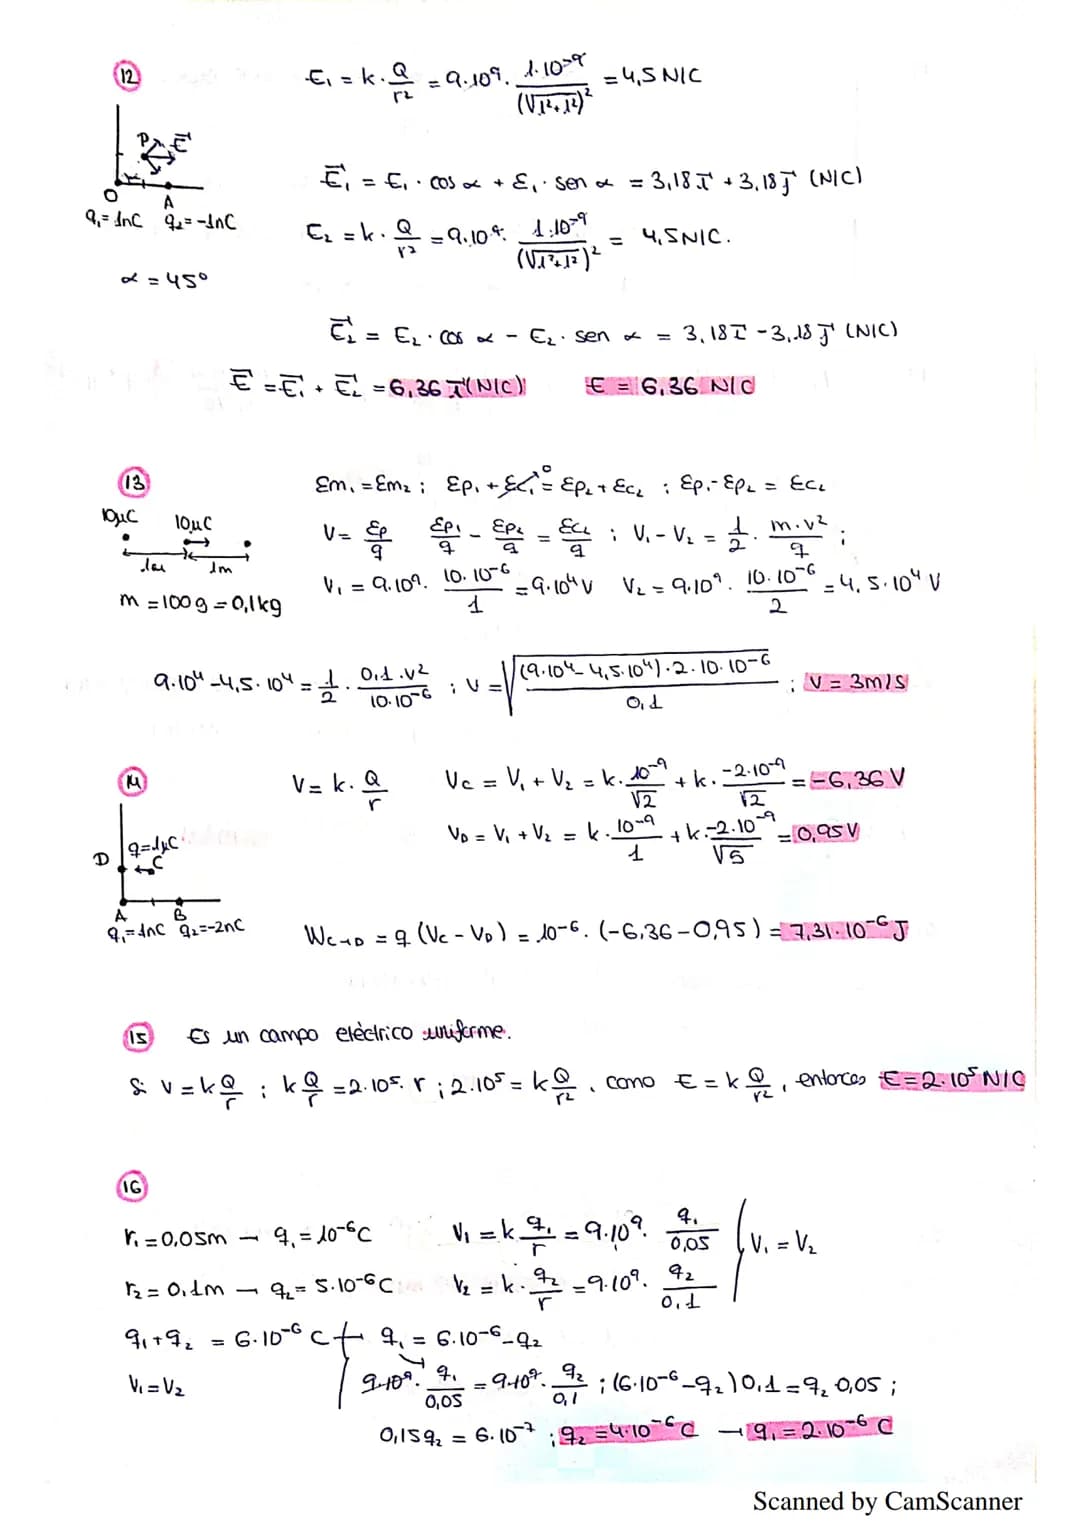 12
E₁ = k · Q/r² = 9·10⁹ · 1·10⁻⁹/(√1²+1²)² = 4,5 N/C
P E⃗
O A
q₁ = 1nC q₂ = -1nC
α = 45º
E⃗₁ = E₁ · cos α + E₁ · sen α = 3,18 i⃗ + 3,18 j⃗ (N/C)
E₂ = k · Q/r² = 9·10⁹ · 1·10⁻⁹/(√1²+1²)² = 4,5 N/C.
E⃗₂ = E₂ · cos α - E₂ · sen α = 3,18 i⃗ - 3,18 j⃗ (N/C)
E⃗ = E⃗₁ + E⃗₂ = 6,36 i⃗ (N/C) E = 6,36 N/C
13
Em₁ = Em₂ ; Ep₁ + Ec₁ ⁰ = Ep₂ + Ec₂ ; Ep₁ - Ep₂ = Ec₂
10μC 10μC
1m 1m
m = 100g = 0,1kg
V = Ep/q Ep₁/q - Ep₂/q = Ec₂/q ; V₁ - V₂ = 1/2 · m·v²/q ;
V₁ = 9·10⁹ · 10·10⁻⁶/1 = 9·10⁴ V V₂ = 9·10⁹ · 10·10⁻⁶/2 = 4,5·10⁴ V
9·10⁴ - 4,5·10⁴ = 1/2 · 0,1·v²/10·10⁻⁶ ; v = √((9·10⁴ - 4,5·10⁴)·2·10·10⁻⁶/0,1) ; v = 3m/s
14
V = k · Q/r Vc = V₁ + V₂ = k · 10⁻⁹/√2 + k · -2·10⁻⁹/√2 = -6,36 V
V_D = V₁ + V₂ = k · 10⁻⁹/1 + k · -2·10⁻⁹/√5 = 0,95 V
q = 1μC
D C
A B
q₁ = 1nC q₂ = -2nC
W_C→D = q (Vc - V_D) = 10⁻⁶ · (-6,36 - 0,95) = 7,31·10⁻⁶ J
15 Es un campo eléctrico uniforme.
Si V = k Q/r ; k Q/r = 2·10⁵ · r ; 2·10⁵ = k Q/r² , como E = k Q/r² , entonces E = 2·10⁵ N/C
16
r₁ = 0,05m → q₁ = 10⁻⁶ C V₁ = k · q₁/r = 9·10⁹ · q₁/0,05
V₁ = V₂
r₂ = 0,1m → q₂ = 5·10⁻⁶ C V₂ = k · q₂/r = 9·10⁹ · q₂/0,1
q₁ + q₂ = 6·10⁻⁶ C q₁ = 6·10⁻⁶ - q₂
V₁ = V₂ 9·10⁹ · q₁/0,05 = 9·10⁹ · q₂/0,1 ; (6·10⁻⁶ - q₂) 0,1 = q₂ 0,05 ;
0,15 q₂ = 6·10⁻⁷ ; q₂ = 4·10⁻⁶ C → q₁ = 2·10⁻⁶ C
Scanned by CamScanner